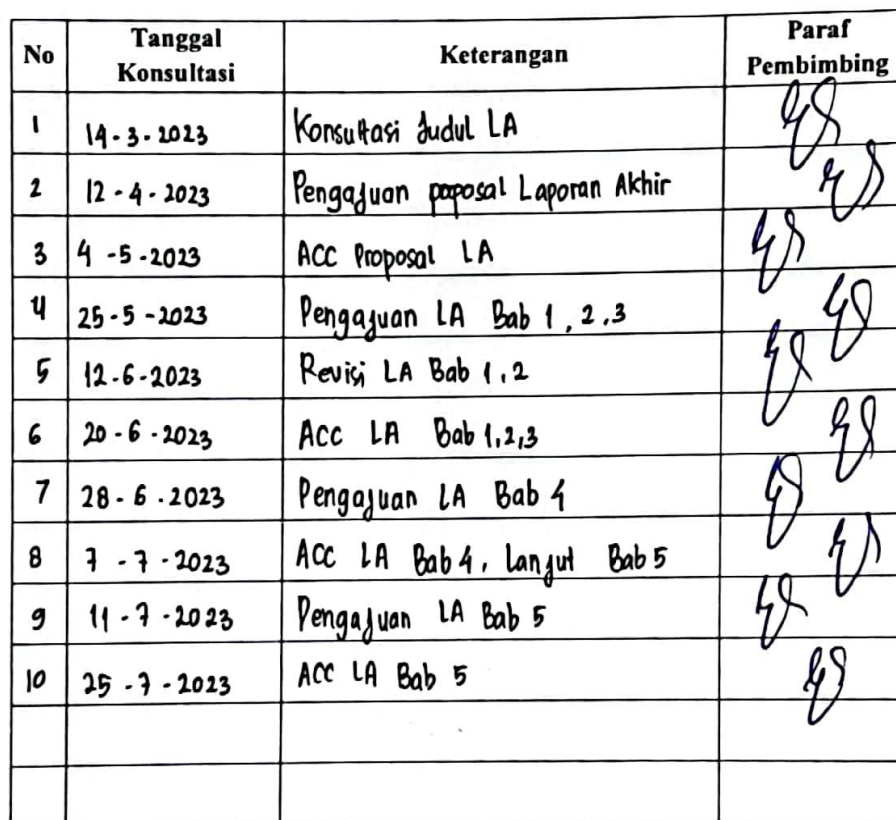 No Tanggal Konsultasi Keterangan Paraf Pembimbing
1 14-3-2023 Konsultasi Judul LA
2 12-4-2023 Pengajuan poposal Laporan Akhir
3 4-5-2023 ACC Proposal LA
4 25-5-2023 Pengajuan LA Bab 1, 2, 3
5 12-6-2023 Revisi LA Bab 1, 2
6 20-6-2023 ACC LA Bab 1,2,3
7 28-6-2023 Pengajuan LA Bab 4
8 7-7-2023 ACC LA Bab 4, Lanjut Bab 5
9 11-7-2023 Pengajuan LA Bab 5
10 25-7-2023 ACC LA Bab 5